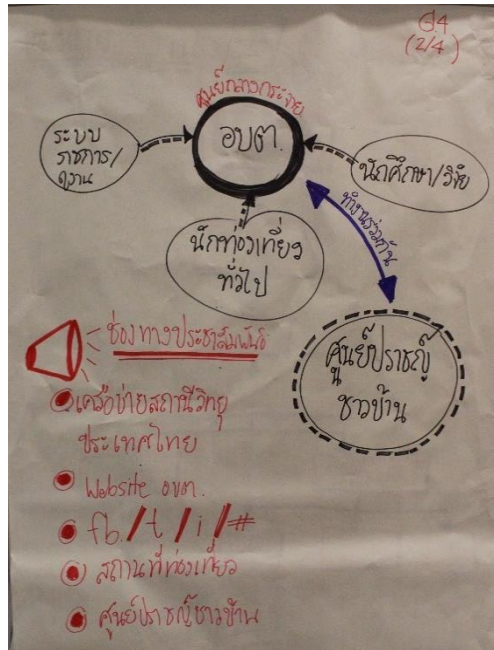 G4
(2/4)
ศูนย์กลางกระจาย
อบต.
ระบบ
ราชการ/
ดูงาน
นักศึกษา/วิจัย
นักท่องเที่ยว
ทั่วไป
ทำงานร่วมกัน
ศูนย์ปราชญ์
ชาวบ้าน
ช่องทางประชาสัมพันธ์
เครือข่ายสถานีวิทยุ
ประเทศไทย
Website อบต.
fb/t/i/#
สถานที่ท่องเที่ยว
ศูนย์ปราชญ์ชาวบ้าน